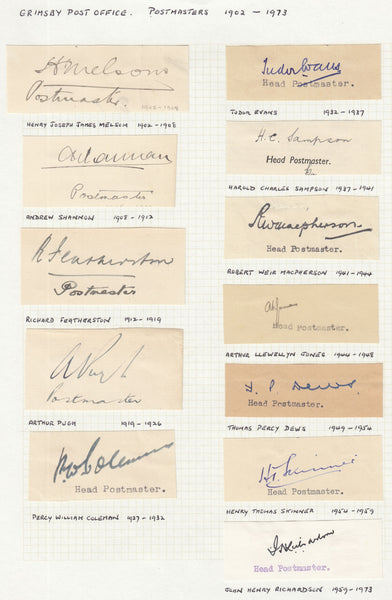 GRIMSBY POST OFFICE. POSTMASTERS 1902 - 1973
HJMelsom
Postmaster.
1902-1908
HENRY JOSEPH JAMES MELSOM 1902 - 1908
AShannan
Postmaster
ANDREW SHANNON 1908 - 1912
R Featherston
Postmaster
RICHARD FEATHERSTON 1912 - 1919
A Pugh
Postmaster
ARTHUR PUGH 1919 - 1926
P.W. Coleman
Head Postmaster.
PERCY WILLIAM COLEMAN 1927 - 1932
Tudor Evans
Head Postmaster.
TUDOR EVANS 1932 - 1937
H.C. Sampson
Head Postmaster.
HAROLD CHARLES SAMPSON 1937 - 1941
RWMacpherson
Head Postmaster.
ROBERT WEIR MACPHERSON 1941 - 1944
ALJones
Head Postmaster.
ARTHUR LLEWELLYN JONES 1944 - 1948
T. P. Dews
Head Postmaster.
THOMAS PERCY DEWS 1949 - 1954
HT Skinner
Head Postmaster.
HENRY THOMAS SKINNER 1954 - 1959
JHRichardson
Head Postmaster.
JOHN HENRY RICHARDSON 1959 - 1973